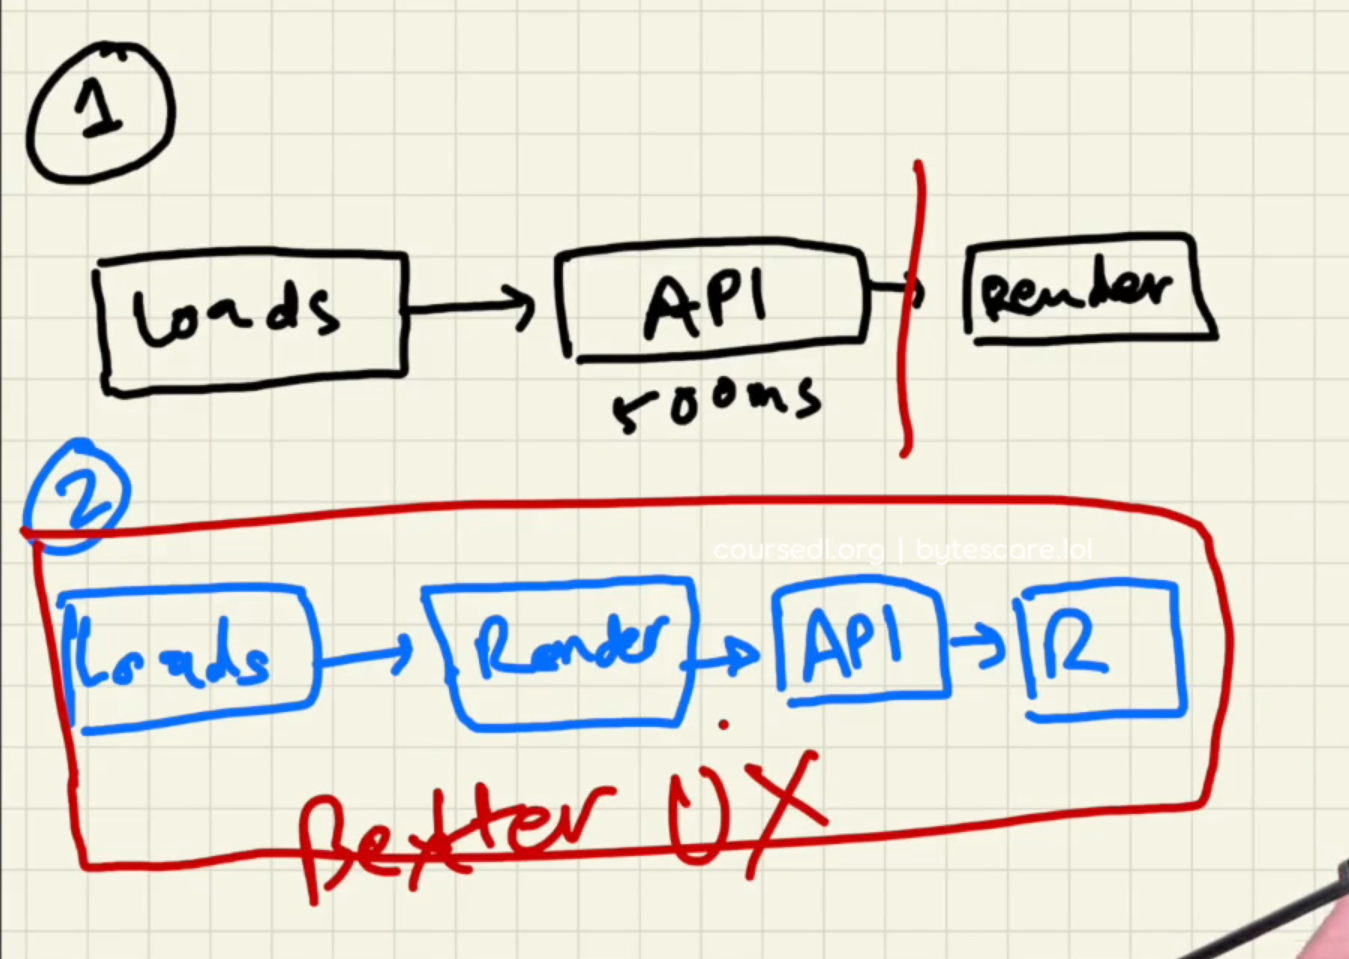 1
Loads API Render
500ms
2
coursedl.org | bytescare.lol
Loads Render API R
Better UX